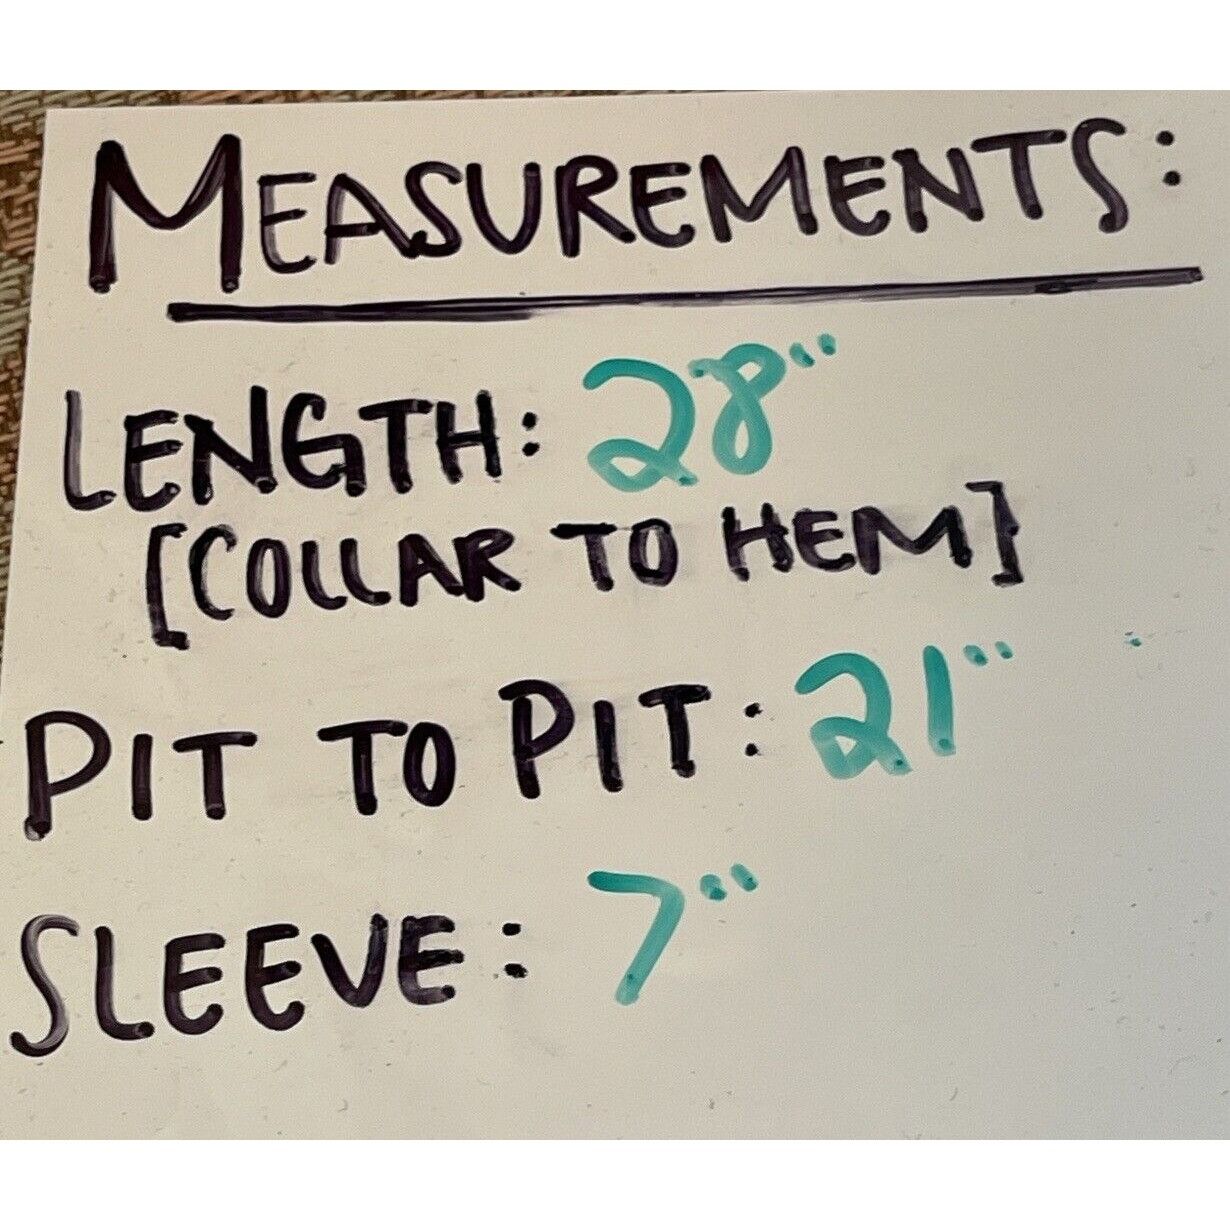 MEASUREMENTS:
LENGTH: 28"
[COLLAR TO HEM]
PIT TO PIT: 21"
SLEEVE: 7"